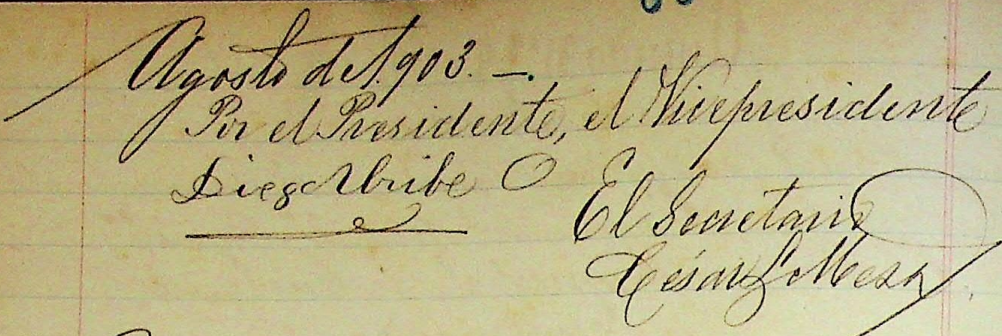 Agosto de 1.903. —.
Por el Presidente, el Vicepresidente
Diego Uribe O
El Secretario
César Mesa